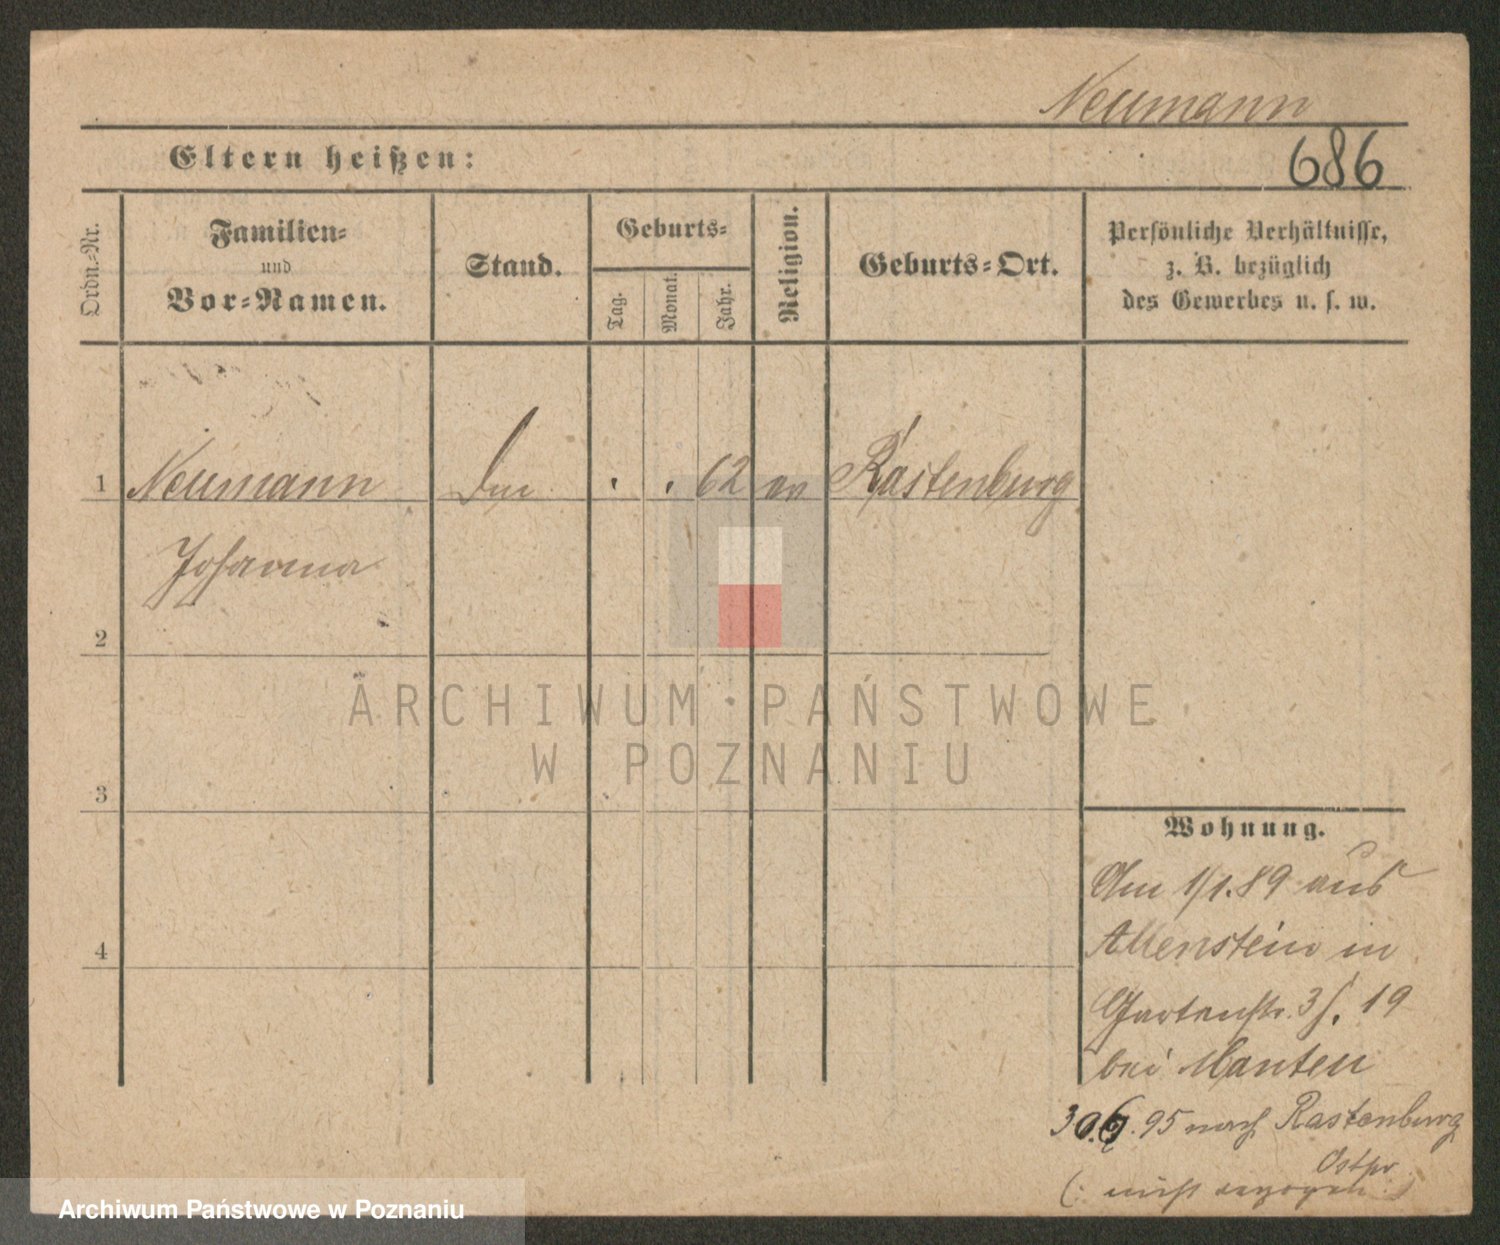 Neumann
Eltern heißen:
686
Ordn.-Nr.
Familien-
und
Vor-Namen.
Stand.
Geburts-
Tag.
Monat.
Jahr.
Religion.
Geburts-Ort.
Persönliche Verhältnisse,
z. B. bezüglich
des Gewerbes u. s. w.
1 Neumann 62 ev Rastenburg
Johanna
2
3
4
Wohnung.
Am 1/1.89 aus
Allenstein in
Gartenstr. 3/. 19
bei Manten
30.6.95 nach Rastenburg
Ostpr
(: nicht verzogen :)
ARCHIWUM PAŃSTWOWE
W POZNANIU
Archiwum Państwowe w Poznaniu